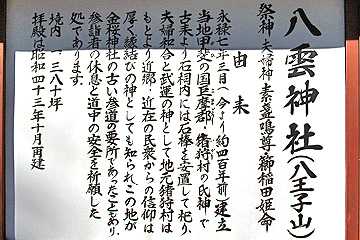 八雲神社(八王子山)
祭神 夫婦神 素盞鳴尊 御稲田姫命
由来
永禄七年三月(今より約四百年前)建立
当地甲斐の国巨摩郡 猪狩村の氏神で
古来より石祠内には石棒を安置して祀り
夫婦和合と武運の神として地元猪狩村は
もとより近郷、近在の民衆からの信仰は
厚く縁結びの神としても知られこの地が
金桜神社の古い参道の要所であったこともあり、
参詣者の休息と道中の安全を祈願した
処であります。
境内 三八〇坪
拝殿は昭和四十三年十月再建